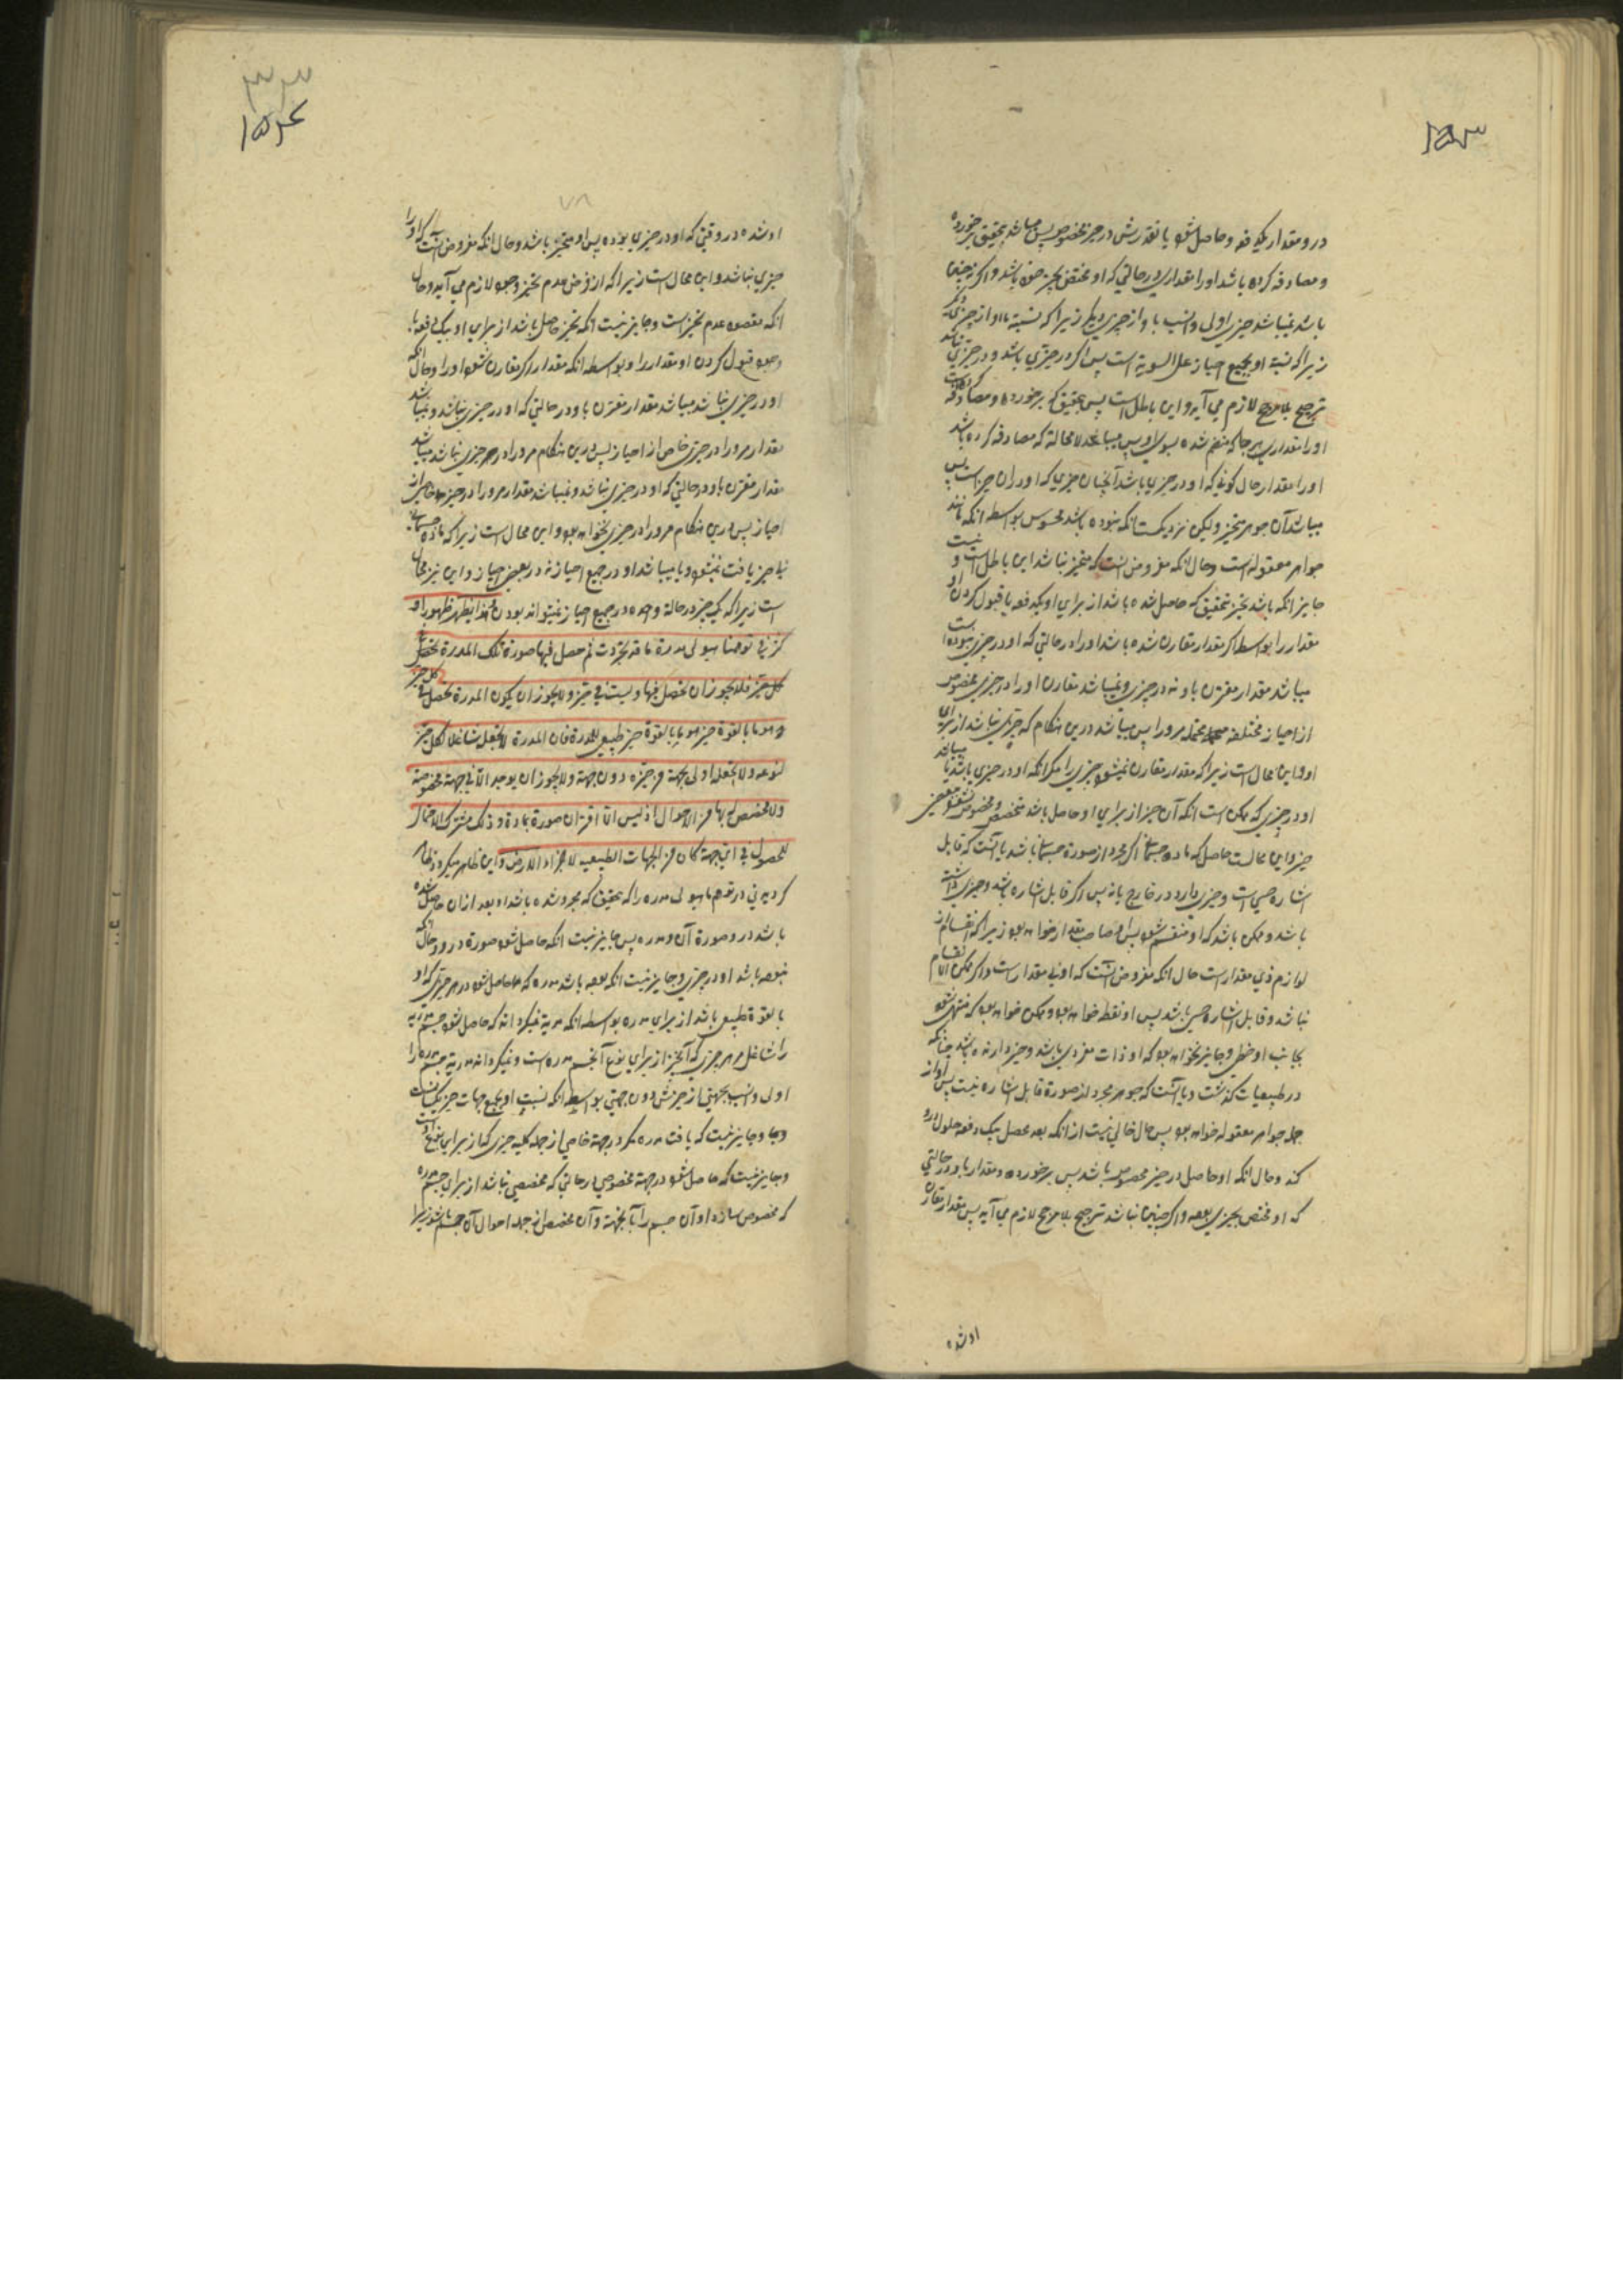 ۱۵۳
درو مقدار بیکدفعه و حاصل شود با تقدرش در حیز مخصوص پس میباشد بتحقیق برخورده
و مصادفه کرده باشد او را مقداری در حالتی که او مختص بحیز خود باشد و اگر نه چنین
باشد نمیباشد حیزی اولی و انسب باو از حیزی دیگر زیرا که نسبة باو از حیزی دیگر
زیرا که نسبة او بجمیع احیاز علی السویة است پس اگر در حیزی باشد و در حیزی نباشد
ترجیح بلا مرجح لازم می آید و این باطل است پس بتحقیق که برخورده و مصادفه کرده است
او را مقداری هر جا که منضم شده بسوی او پس میباشد لا محاله که مصادفه کرده باشد
او را مقدار حال کونی که او در حیزی باشد آنچنان حیزی که او در آن حیز است پس
میباشد آن جوهر متحیز ولیکن نزدیکست انکه نبوده باشد محسوس بواسطه انکه مانند
جواهر معقوله است و حال انکه مفروض انست که متحیز نباشد این باطل است و نیست
جایز انکه باشد تحیز بتحقیق که حاصل شده باشد از برای او بیکدفعه با قبول کردن او
مقدار را بواسطه اکر مقدار مقارن شده باشد او را در حالتی که او در حیزی نبوده است
میباشد مقدار مقترن باو نه در حیزی و نمیباشد مقارن او را در حیزی مخصوص
از احیاز مختلفه محتمله مرورا پس میباشد درین هنگام که حیزی نباشد از برای
او و این محال است زیرا که مقدار مقارن نمیشود چیزی را مکر انکه او در حیزی باشد یا میباشد
او در حیزی که ممکن است انکه آن حیز از برای او حاصل باشد و مخصوص نشود ببعضی
حیز و این محالست حاصل که ماده جسمانی اکر مجرد از صورة جسمانی باشد یا آنست که قابل
اشاره حسی است و حیزی دارد در خارج یا نه پس اکر قابل اشاره باشد و حیزی داشته
باشد و ممکن باشد که او منقسم شود پس او صاحب مقدار خواهد بود زیرا که انقسام از
لوازم ذی مقدار است حال انکه مفروض انست که او بی مقدار است و اکر ممکن الانقسام
نباشد و قابل اشاره حسی باشد پس او نقطه خواهد بود و ممکن خواهد بود که منتهی شود
بجانب او خطی و جایز نخواهد بود که او ذات منفردی باشد و حیز دار نه باشد چنانکه
در طبیعیات کذشت و یا آنست که جوهر مجرد از صورة قابل اشاره نیست پس او از
جمله جواهر معقوله خواهد بود پس حال خالی نیست از انکه بعد محصل بیک دفعه حلول درو
کند و حال انکه او حاصل در حیز مخصوص باشد پس برخورده و مقدار باو در حالتی
که او مختص بحیزی بوده و اکر چنین نباشد ترجیح بلا مرجح لازم می آید پس مقدار مقارن
او شده
۳۳
۱۵۴
۷۸
او شده در وقتی که او در حیزی بوده پس او متحیز باشد و حال انکه مفروض انست که او را
حیزی نباشد و این محال است زیرا که از فرض عدم تحیز وجود لازم می آید و حال
انکه مقصود عدم تحیز است و جایز نیست انکه تحیز حاصل باشد از برای او بیکدفعه با
وجود قبول کردن او مقدار را و بواسطه انکه مقدار اکر مقارن شود او را و حال انکه
او در حیزی نباشد میباشد مقدار مقترن باو در حالتی که او در حیزی نباشد و نمیباشد
مقدار مرورا در حیزی خاص از احیاز پس درین هنگام مرورا در هر حیزی نباشد میباشد
مقدار مقترن باو در حالتی که او در حیزی نباشد و نمیباشد مقدار مرورا در حیز خاص از
احیاز پس درین هنگام مرورا در حیزی نخواهد بود و این محال است زیرا که ماده جسمانی
بی حیز یافت نمیشود و یا میباشد او در جمیع احیاز نه در بعض احیاز و این نیز محال
است زیرا که یک چیز در حالة واحده در جمیع احیاز نمیتواند بودن و هذا یظهر ظهورا
کثر فی توهمنا هیولی مدرة ما قد تجردت ثم حصل فیها صورة تلک المدرة تحصل
کل حیز فلا یجوز ان تحصل فیها و لیست فی حیز و لا یجوز ان یکون المدرة تحصل فی کل حیز
هو بالقوة حیز هو بالقوة حیز طبیعی للمدرة فان المدرة لا تجعله شاغلا لکل حیز
لنوعه و لا تجعله اولی بجهة من حیزه دون جهة و لا یجوز ان یوجد الا فی جهة مخصوصة
و لا مخصص له بها من الاحوال اذ لیس الا اقتران صورة بمادة و ذلک مشترک الاحتمال
للحصول فی ای جهة کان من الجهات الطبیعیه لاجزاء الارض و این ظاهر میکردد ظاهر
کردیدنی در توهم ما هیولی مدره را که بتحقیق که مجرد شده باشد او بعد از ان حاصل شده
باشد در و صورة آن مدره پس جایز نیست انکه حاصل شود صورة در و در حالتی که
نبوده باشد او در حیزی و جایز نیست انکه بوده باشد مدره که حاصل شود در هر حیزی که او
بالقوة طبیعی باشد از برای مدره بواسطه انکه مدریة نمیکرداند که حاصل شود جسم مدریه
را شاغل هر حیزی که آن حیز از برای نوع آن جسم مدره است و نمیکرداند مدریة جسم مدره را
اولی و انسب بجهتی از حیزش دون جهتی بواسطه انکه نسبت او بجمیع جهات حیز یکسانست
وجا و جایز نیست که یافت مدره مکر در جهة خاصی از جمله کلیه حیزی که از برای نوع اوست
و جایز نیست که حاصل شود در جهة مخصوصی در حالتی که مخصصی نباشد از برای جسم مدره
که مخصوص سازد او آن جسم را بآنجهة و آن مخصص از جمله احوال آن جسم باشد زیرا